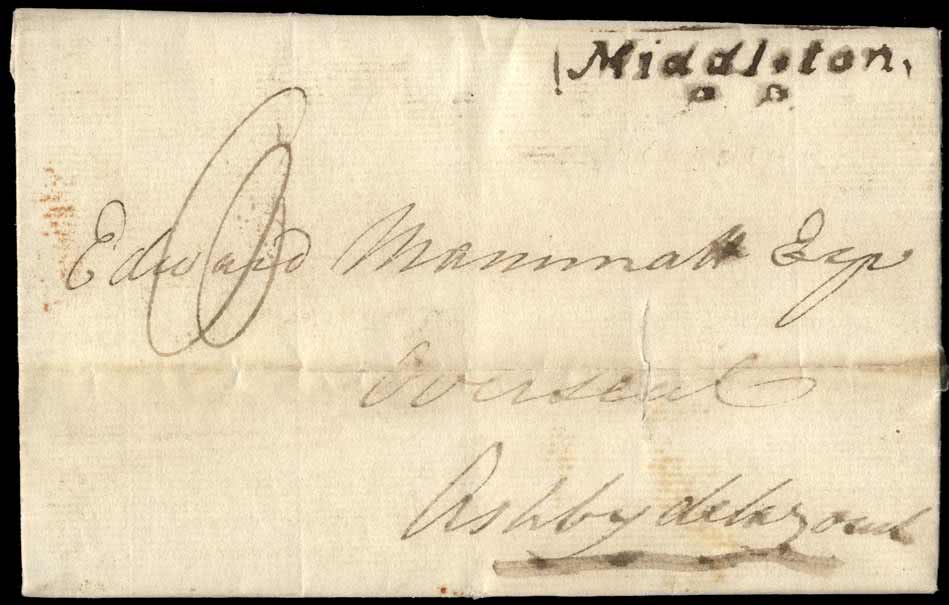 Middleton.
Edward Mammatt Esqr
Overseal
Ashby de la zouch